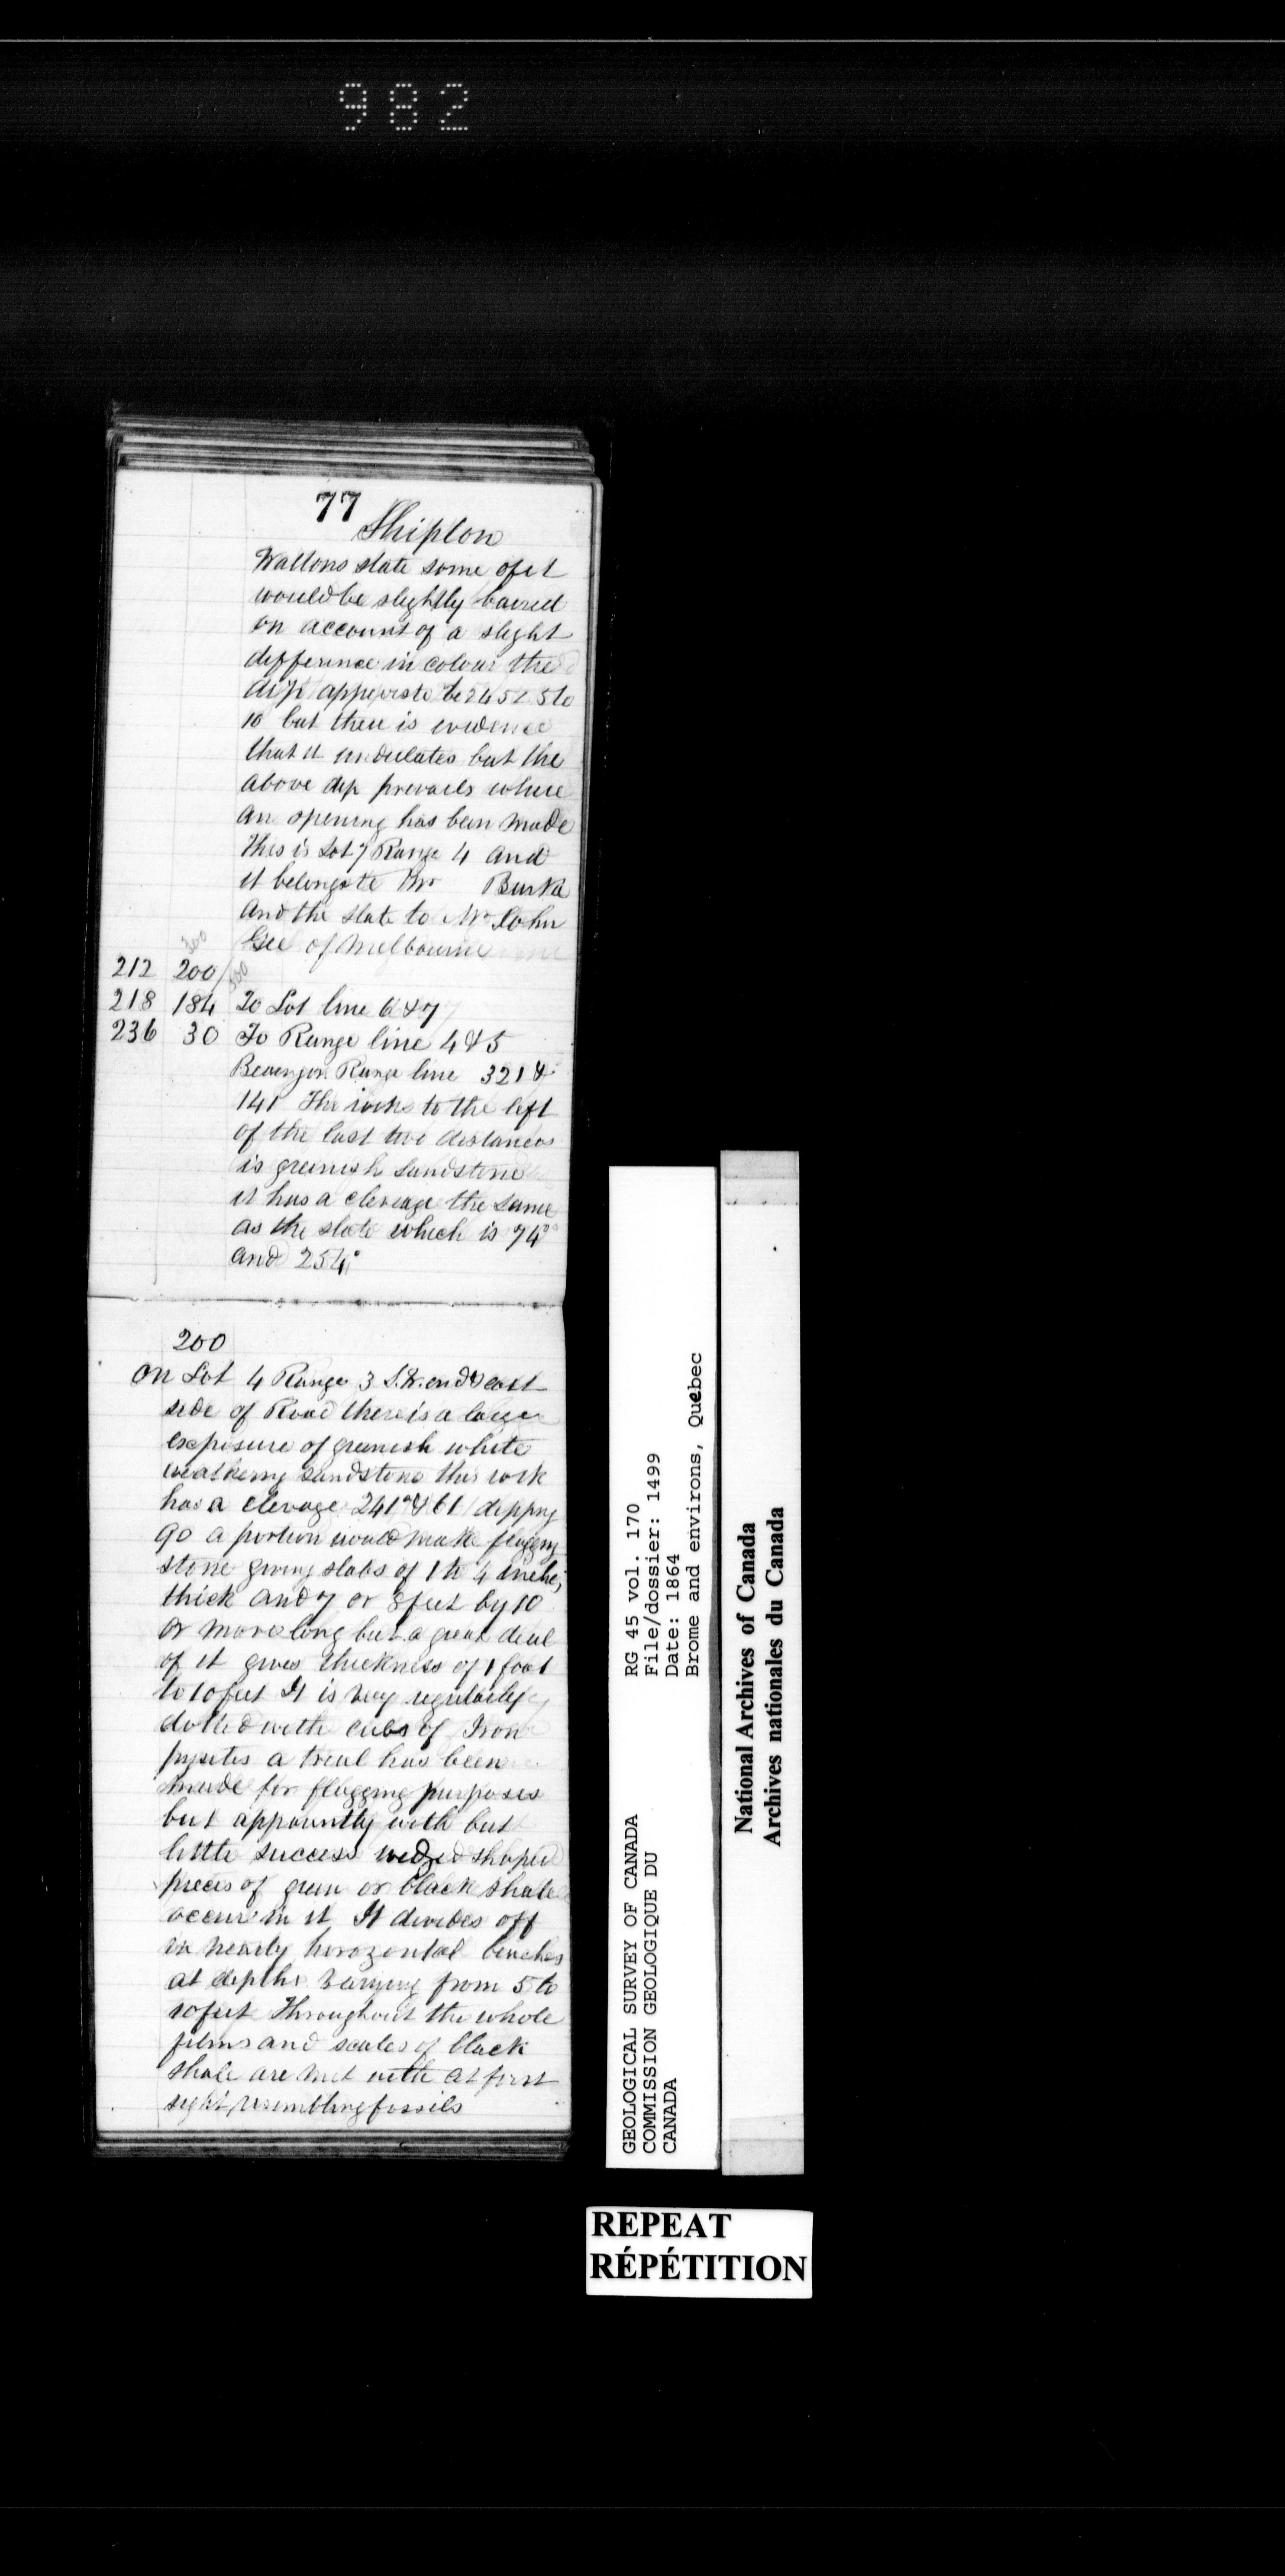 982
77
Shipton
Waltons slate some of it
would be slightly barred
on account of a slight
difference in colour the
dip appears to be 245 < 5 to
10 but there is evidence
that it undulates but the
above dip prevails where
an opening has been made
This is Lot 7 Range 4 and
it belongs to Mr Burke
and the slate to Mr John
Gee of Melbourne
300
212 200/300
218 184 To Lot line 6 & 7
236 30 To Range line 4 & 5
Bearing on Range line 321 &
141 The rocks to the left
of the last two distances
is greenish sandstone
it has a clevage the same
as the slate which is 74°
and 254°
200
On Lot 4 Range 3 S.W. end & east
side of Road there is a large
exposure of greenish white
weathering sandstone this rock
has a clevage 241° & 61 dipping
90 a portion would make flagging
stone giving slabs of 1 to 4 inches
thick and 7 or 8 feet by 10
or more long but a great deal
of it gives thickness of 1 foot
to 10 feet It is very regularly
dotted with cubs of Iron
pyrites a trial has been
made for flagging purposes
but appauntly with but
little success wedged shaped
pieces of green or black shale
occur in it It divides off
in nearly horozontal benches
at depths varying from 5 to
10 feet Throughout the whole
films and scales of black
shale are met with at first
sight resembling fossils
GEOLOGICAL SURVEY OF CANADA
COMMISSION GEOLOGIQUE DU
CANADA
RG 45 vol. 170
File/dossier: 1499
Date: 1864
Brome and environs, Quebec
National Archives of Canada
Archives nationales du Canada
REPEAT
RÉPÉTITION